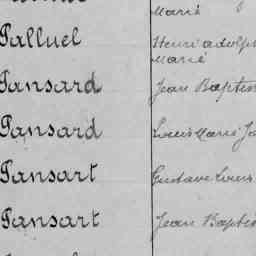 Marie
Palluel Henri Adolph
Marie
Pansard Jean Baptis
Pansard Louis Marie Jo
Pansart Gustave Louis
Pansart Jean Baptis